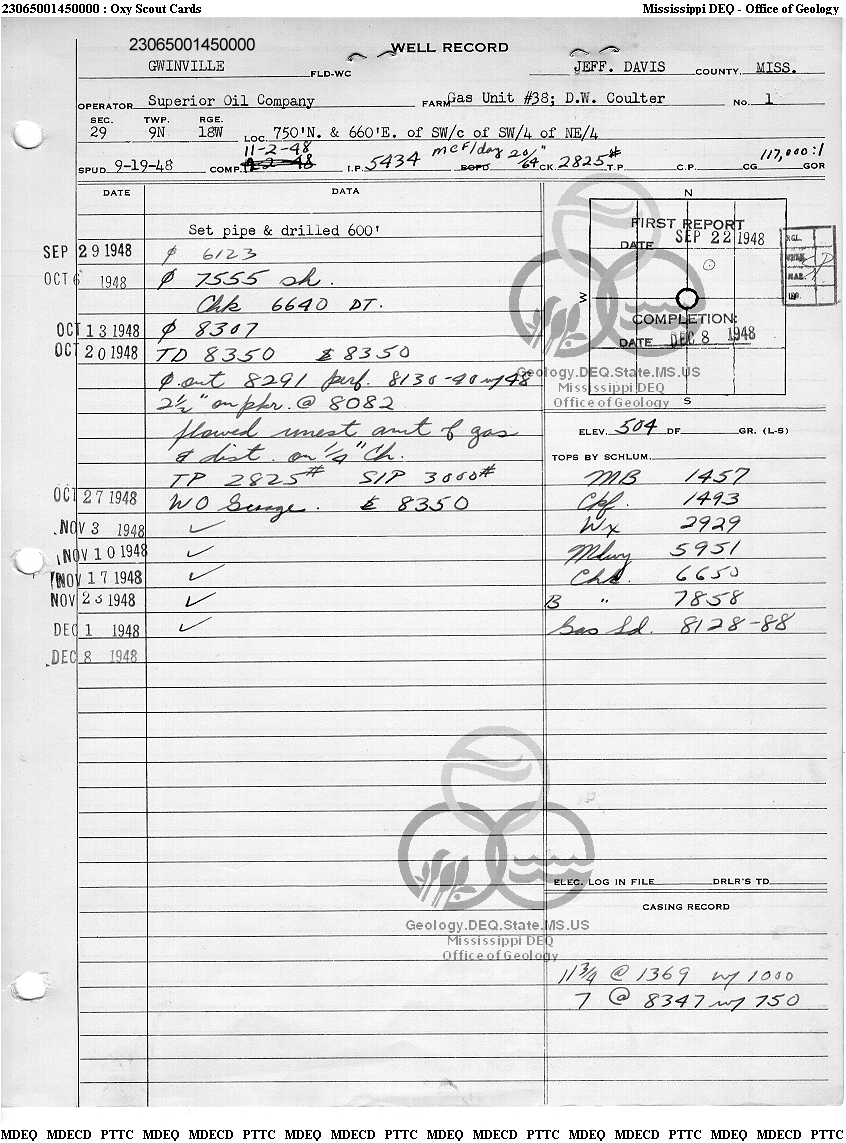 23065001450000 : Oxy Scout Cards Mississippi DEQ - Office of Geology
23065001450000
WELL RECORD
GWINVILLE FLD-WC JEFF. DAVIS COUNTY, MISS.
OPERATOR Superior Oil Company FARM Gas Unit #38; D.W. Coulter No. 1
SEC. TWP. RGE.
29 9N 18W LOC. 750'N. & 660'E. of SW/c of SW/4 of NE/4
11-2-48
SPUD 9-19-48 COMP. I.P. 5434 MCF/day BOPD 20/64" CK. 2825# T.P. C.P. CG 117,000:1 GOR
DATE DATA
Set pipe & drilled 600'
SEP 29 1948 ⌀ 6123
OCT 6 1948 ⌀ 7555 sh.
Chk 6640 DT.
OCT 13 1948 ⌀ 8307
OCT 20 1948 TD 8350 8350
⌀ out 8291 perf. 8130-40 w/48
2½" on pkr. @ 8082
flowed unest amt of gas
& dist. on ¼" Ch.
TP 2825# SIP 3000#
OCT 27 1948 WO 8350
NOV 3 1948 ✓
NOV 10 1948 ✓
NOV 17 1948 ✓
NOV 23 1948 ✓
DEC 1 1948 ✓
DEC 8 1948
N
FIRST REPORT
DATE SEP 22 1948
W
COMPLETION:
DATE DEC 8 1948
S
Geology.DEQ.State.MS.US
Mississippi DEQ
Office of Geology
ELEV. 504 DF GR. (L-S)
TOPS BY SCHLUM.
MB 1457
Ckf. 1493
Wx 2929
Mdwy 5951
Chk. 6650
B " 7858
Gas Sd. 8128-88
Geology.DEQ.State.MS.US
Mississippi DEQ
Office of Geology
ELEC. LOG IN FILE DRLR'S TD
CASING RECORD
11¾ @ 1369 w/ 1000
7 @ 8347 w/ 750
MDEQ MDECD PTTC MDEQ MDECD PTTC MDEQ MDECD PTTC MDEQ MDECD PTTC MDEQ MDECD PTTC MDEQ MDECD PTTC